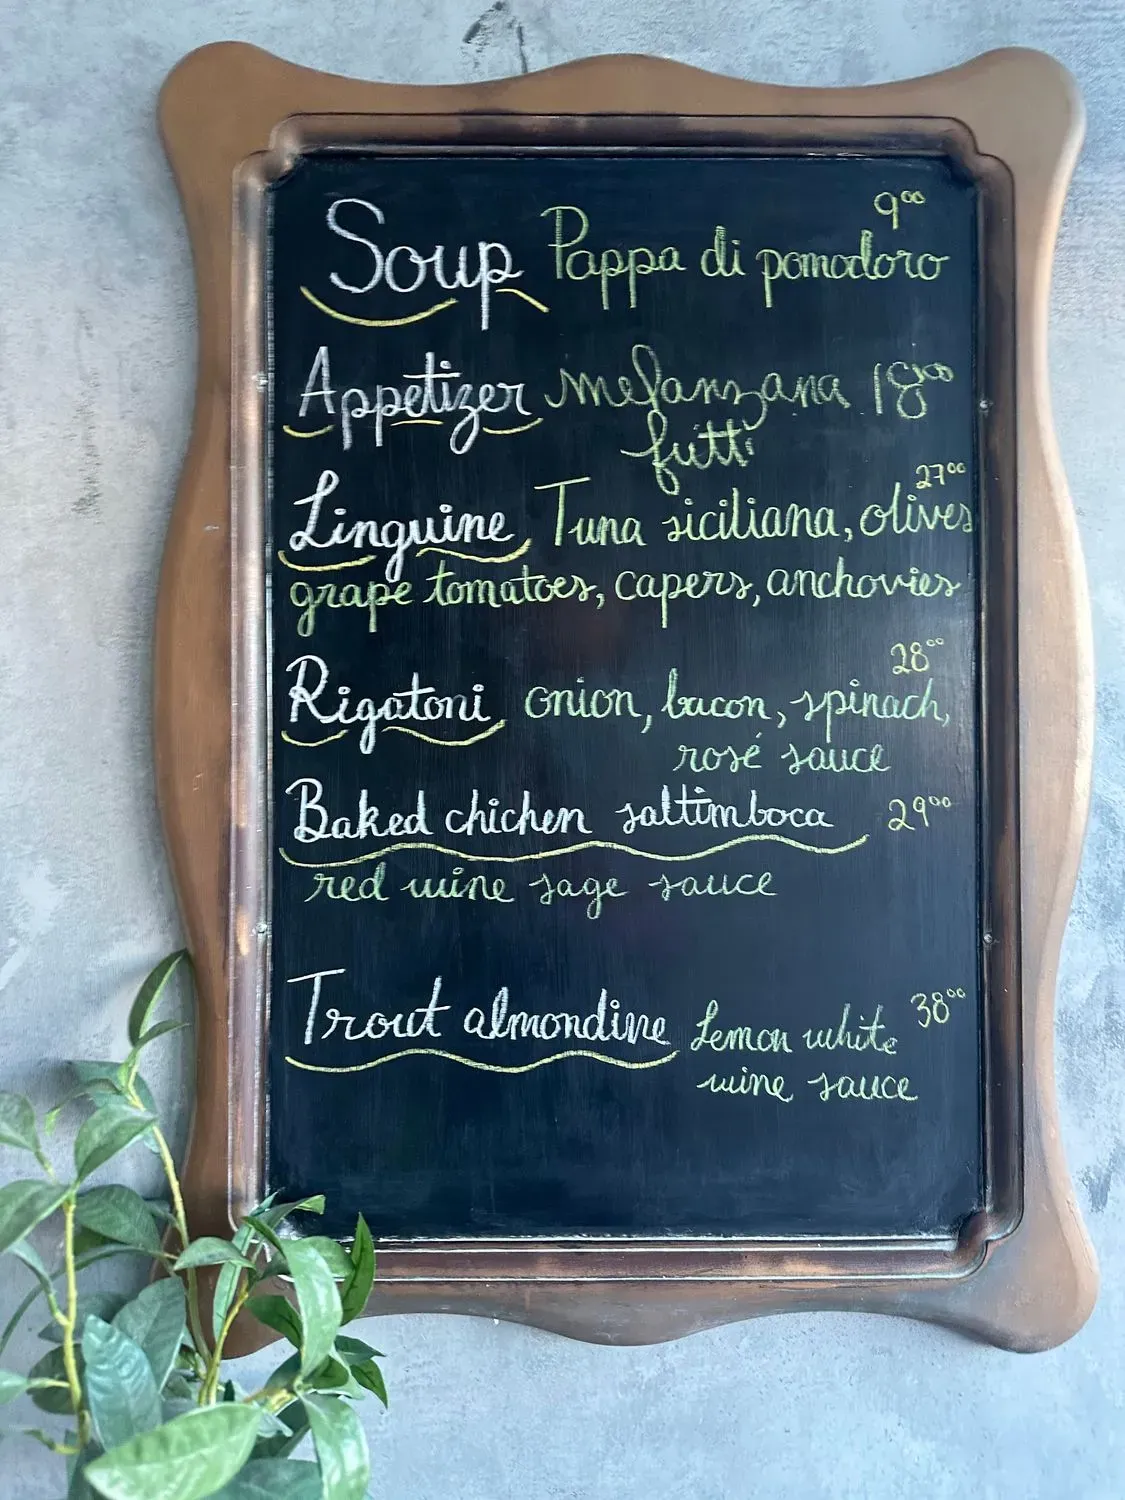 Soup Pappa di pomodoro 9⁰⁰
Appetizer Melanzana 18⁰⁰
fritti
Linguine Tuna siciliana, olives 27⁰⁰
grape tomatoes, capers, anchovies
Rigatoni onion, bacon, spinach, 28⁰⁰
rosé sauce
Baked chichen saltimboca 29⁰⁰
red wine sage sauce
Trout almondine Lemon white 38⁰⁰
wine sauce